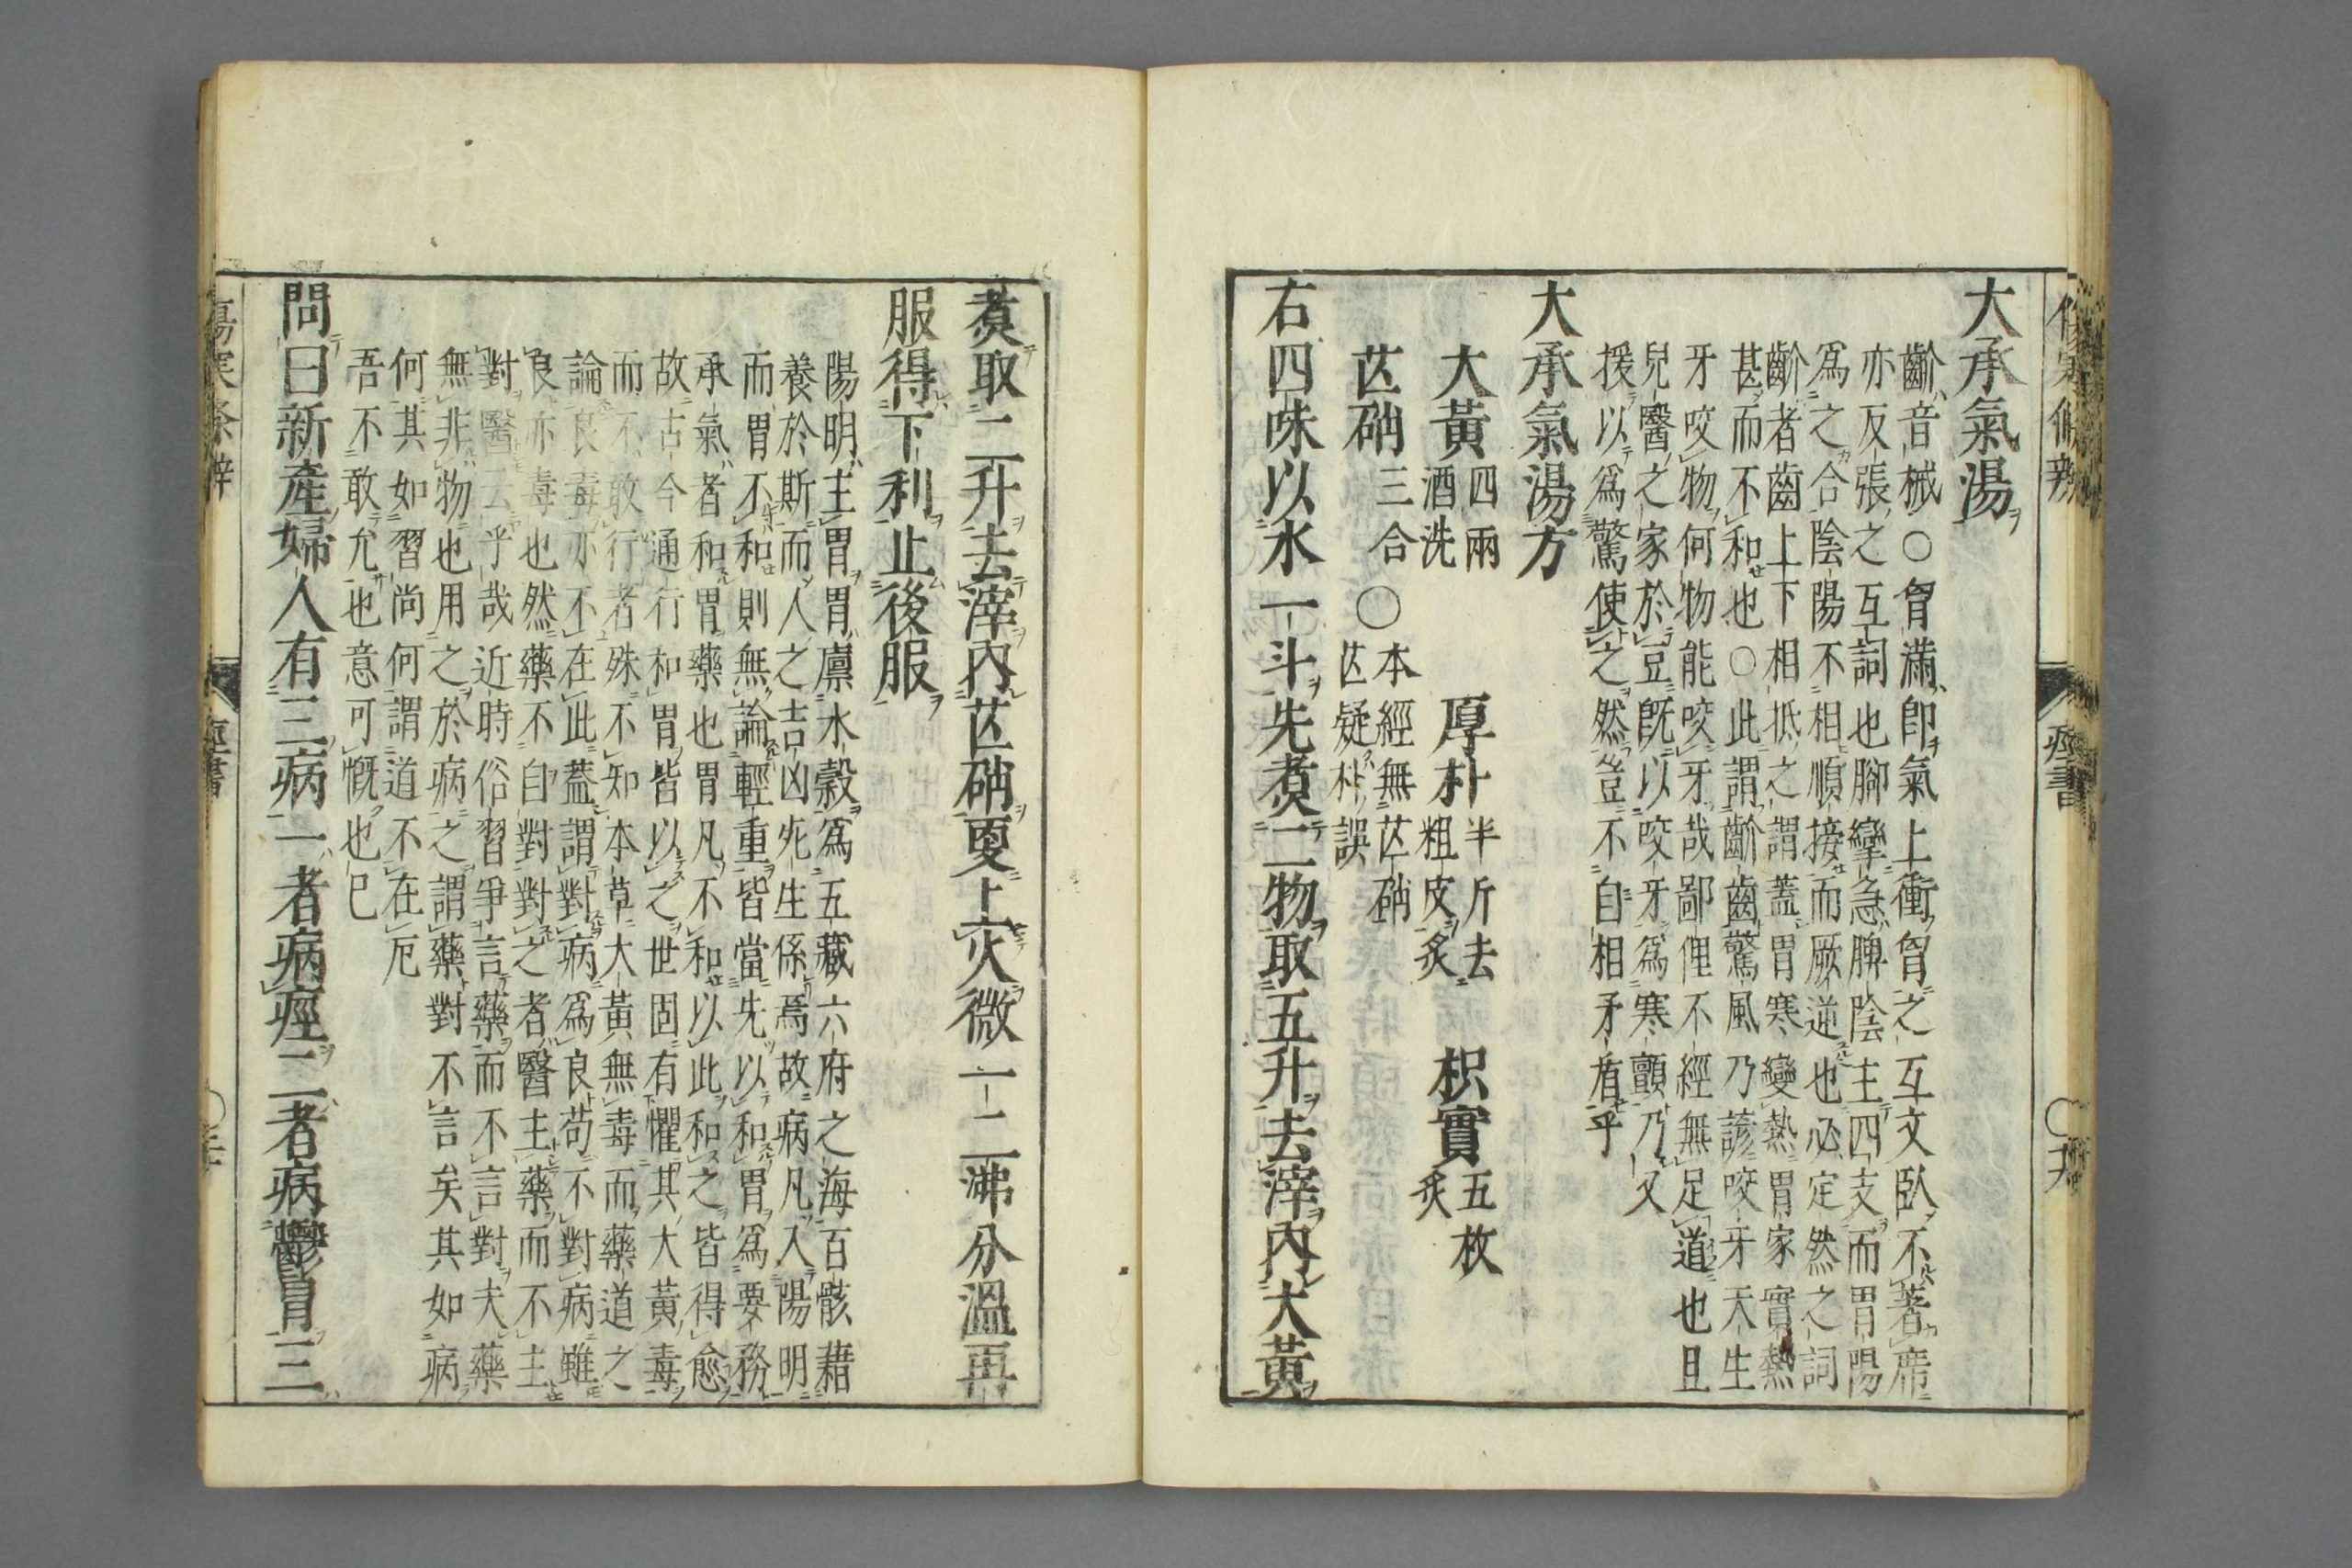 大承氣湯
齘音械○胷滿卽氣上衝胷之互文臥不著席
亦反張之互詞也腳攣急脾陰主四支而胃陽
爲之合陰陽不相順接而厥逆也必定然之詞
齘者齒上下相抵之謂蓋胃寒變熱胃家實熱
甚而不和也○此謂齘齒驚風乃諺咬牙天生
牙咬物何物能咬牙哉鄙俚不經無足道也且
兒醫之家於豆旣以咬牙爲寒顫乃又
援以爲驚使之然豈不自相矛盾乎
大承氣湯方
大黃四兩酒洗 厚朴半斤去粗皮炙 枳實五枚炙
芒硝三合○本經無芒硝芒疑朴誤
右四味以水一斗先煑二物取五升去滓內大黃
煑取二升去滓內芒硝更上火微一二沸分溫再
服得下利止後服
陽明主胃胃廪水穀爲五藏六府之海百骸藉
養於斯而人之吉凶死生係焉故病凡入陽明
而胃不和則無論輕重皆當先以和胃爲要務
承氣者和胃藥也胃凡不和以此和之皆得愈
故古今通行和胃皆以之世固有懼其大黃毒
而不敢行者殊不知本草大黃無毒而藥道之
論良毒亦不在此蓋謂對病爲良苟不對病雖
良亦毒也然藥不自對對之者醫主藥而不主
對醫云乎哉近時俗習爭言藥而不言對夫藥
無非物也用之於病之謂藥對不言矣其如病
何其如習尚何謂道不在厄
吾不敢允也意可慨也已
問曰新產婦人有三病一者病痙二者病鬱冒三
傷寒條辨
痙書